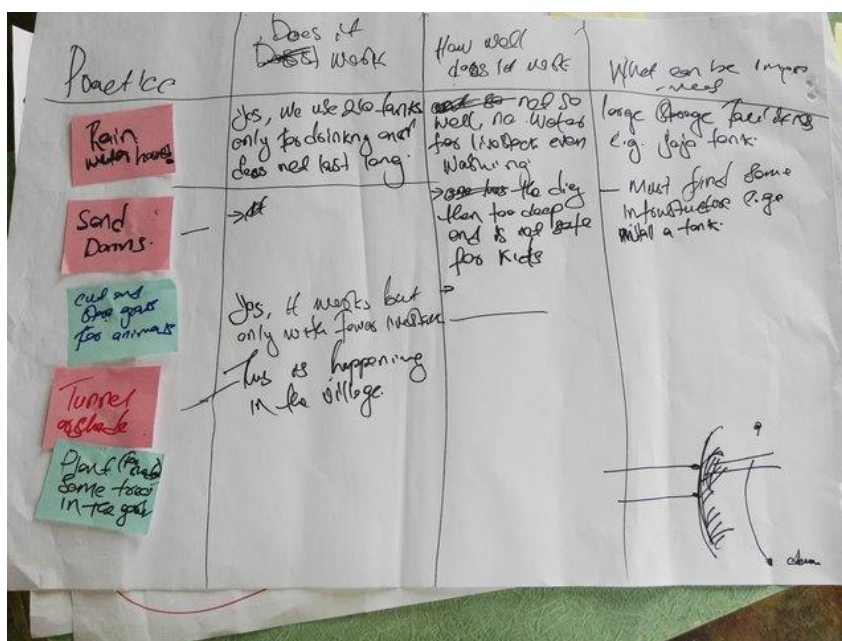 Practice
Does it
work
How well
does it work
What can be impro
-ved
Rain
water
Yes, we use tanks
only for drinking and
does not last long.
not so
well, no water
for livestock even
washing.
large storage
e.g. Jojo tank.
Sand
Dams.
the dig
then too deep
and is not safe
for kids
Must find some
e.g.
a tank.
cut and
grass
for animals
Yes, it works but
only with fewer
Tunnel
This is happening
in the village.
Plant
Some trees
in the